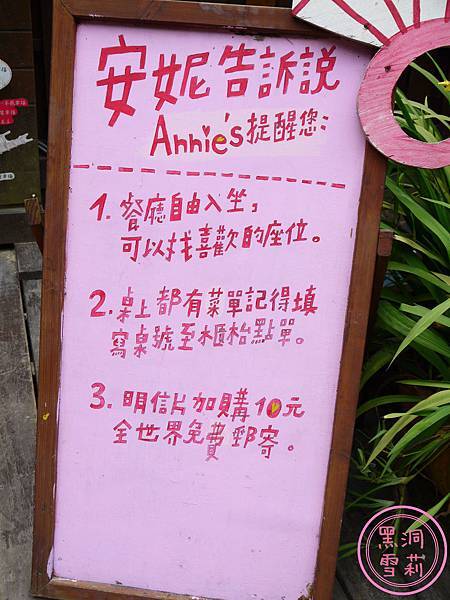 安妮告訴說
Annie's提醒您:
1. 餐廳自由入坐,
可以找喜歡的座位。
2. 桌上都有菜單記得填
寫桌號至櫃枱點單。
3. 明信片加購10元
全世界免費郵寄。
黑洞
雪莉